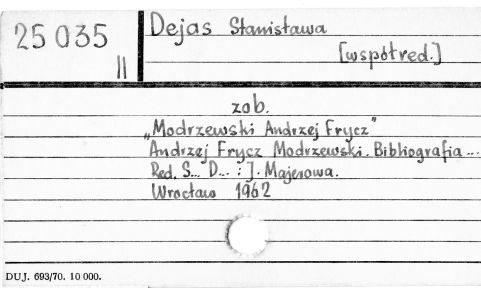 25 035
II
Dejas Stanisława
[współred.]
zob.
„Modrzewski Andrzej Frycz"
Andrzej Frycz Modrzewski. Bibliografia ...
Red. S... D... : J. Majerowa.
Wrocław 1962
DUJ. 693/70. 10 000.